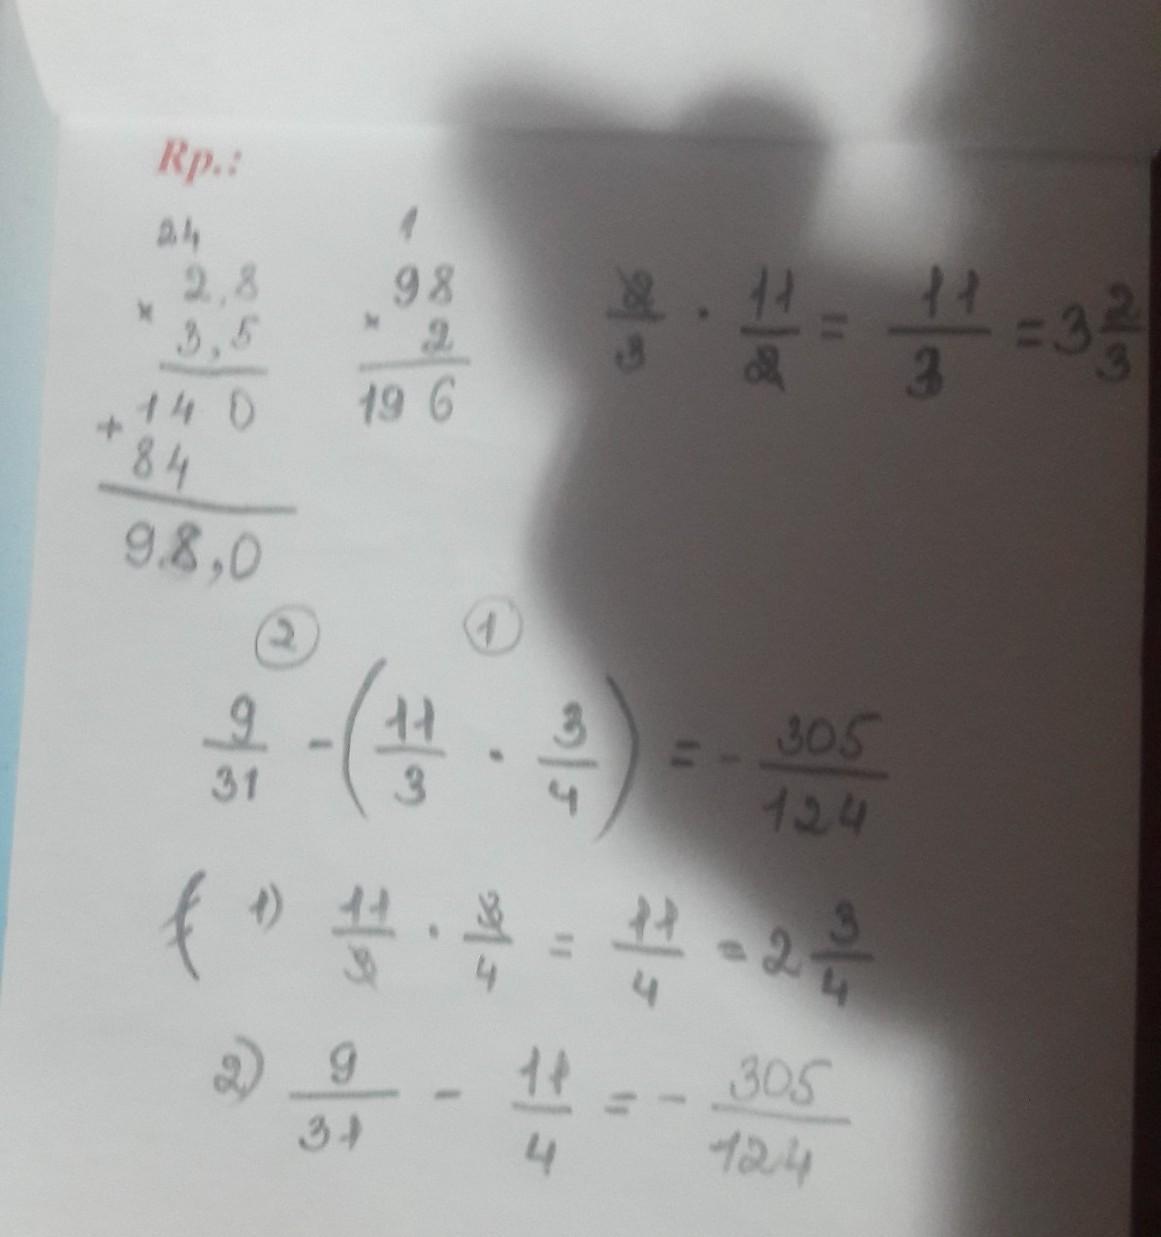 Rp.:
24
2,8
× 3,5
140
+ 84
98,0
1
98
× 2
196
2/3 · 11/2 = 11/3 = 3 2/3
② ①
9/31 - (11/3 · 3/4) = - 305/124
1) 11/3 · 3/4 = 11/4 = 2 3/4
2) 9/31 - 11/4 = - 305/124